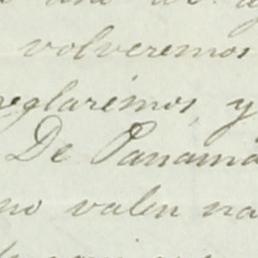 volveremos
reglaremos, y
De Panamá
no valen na